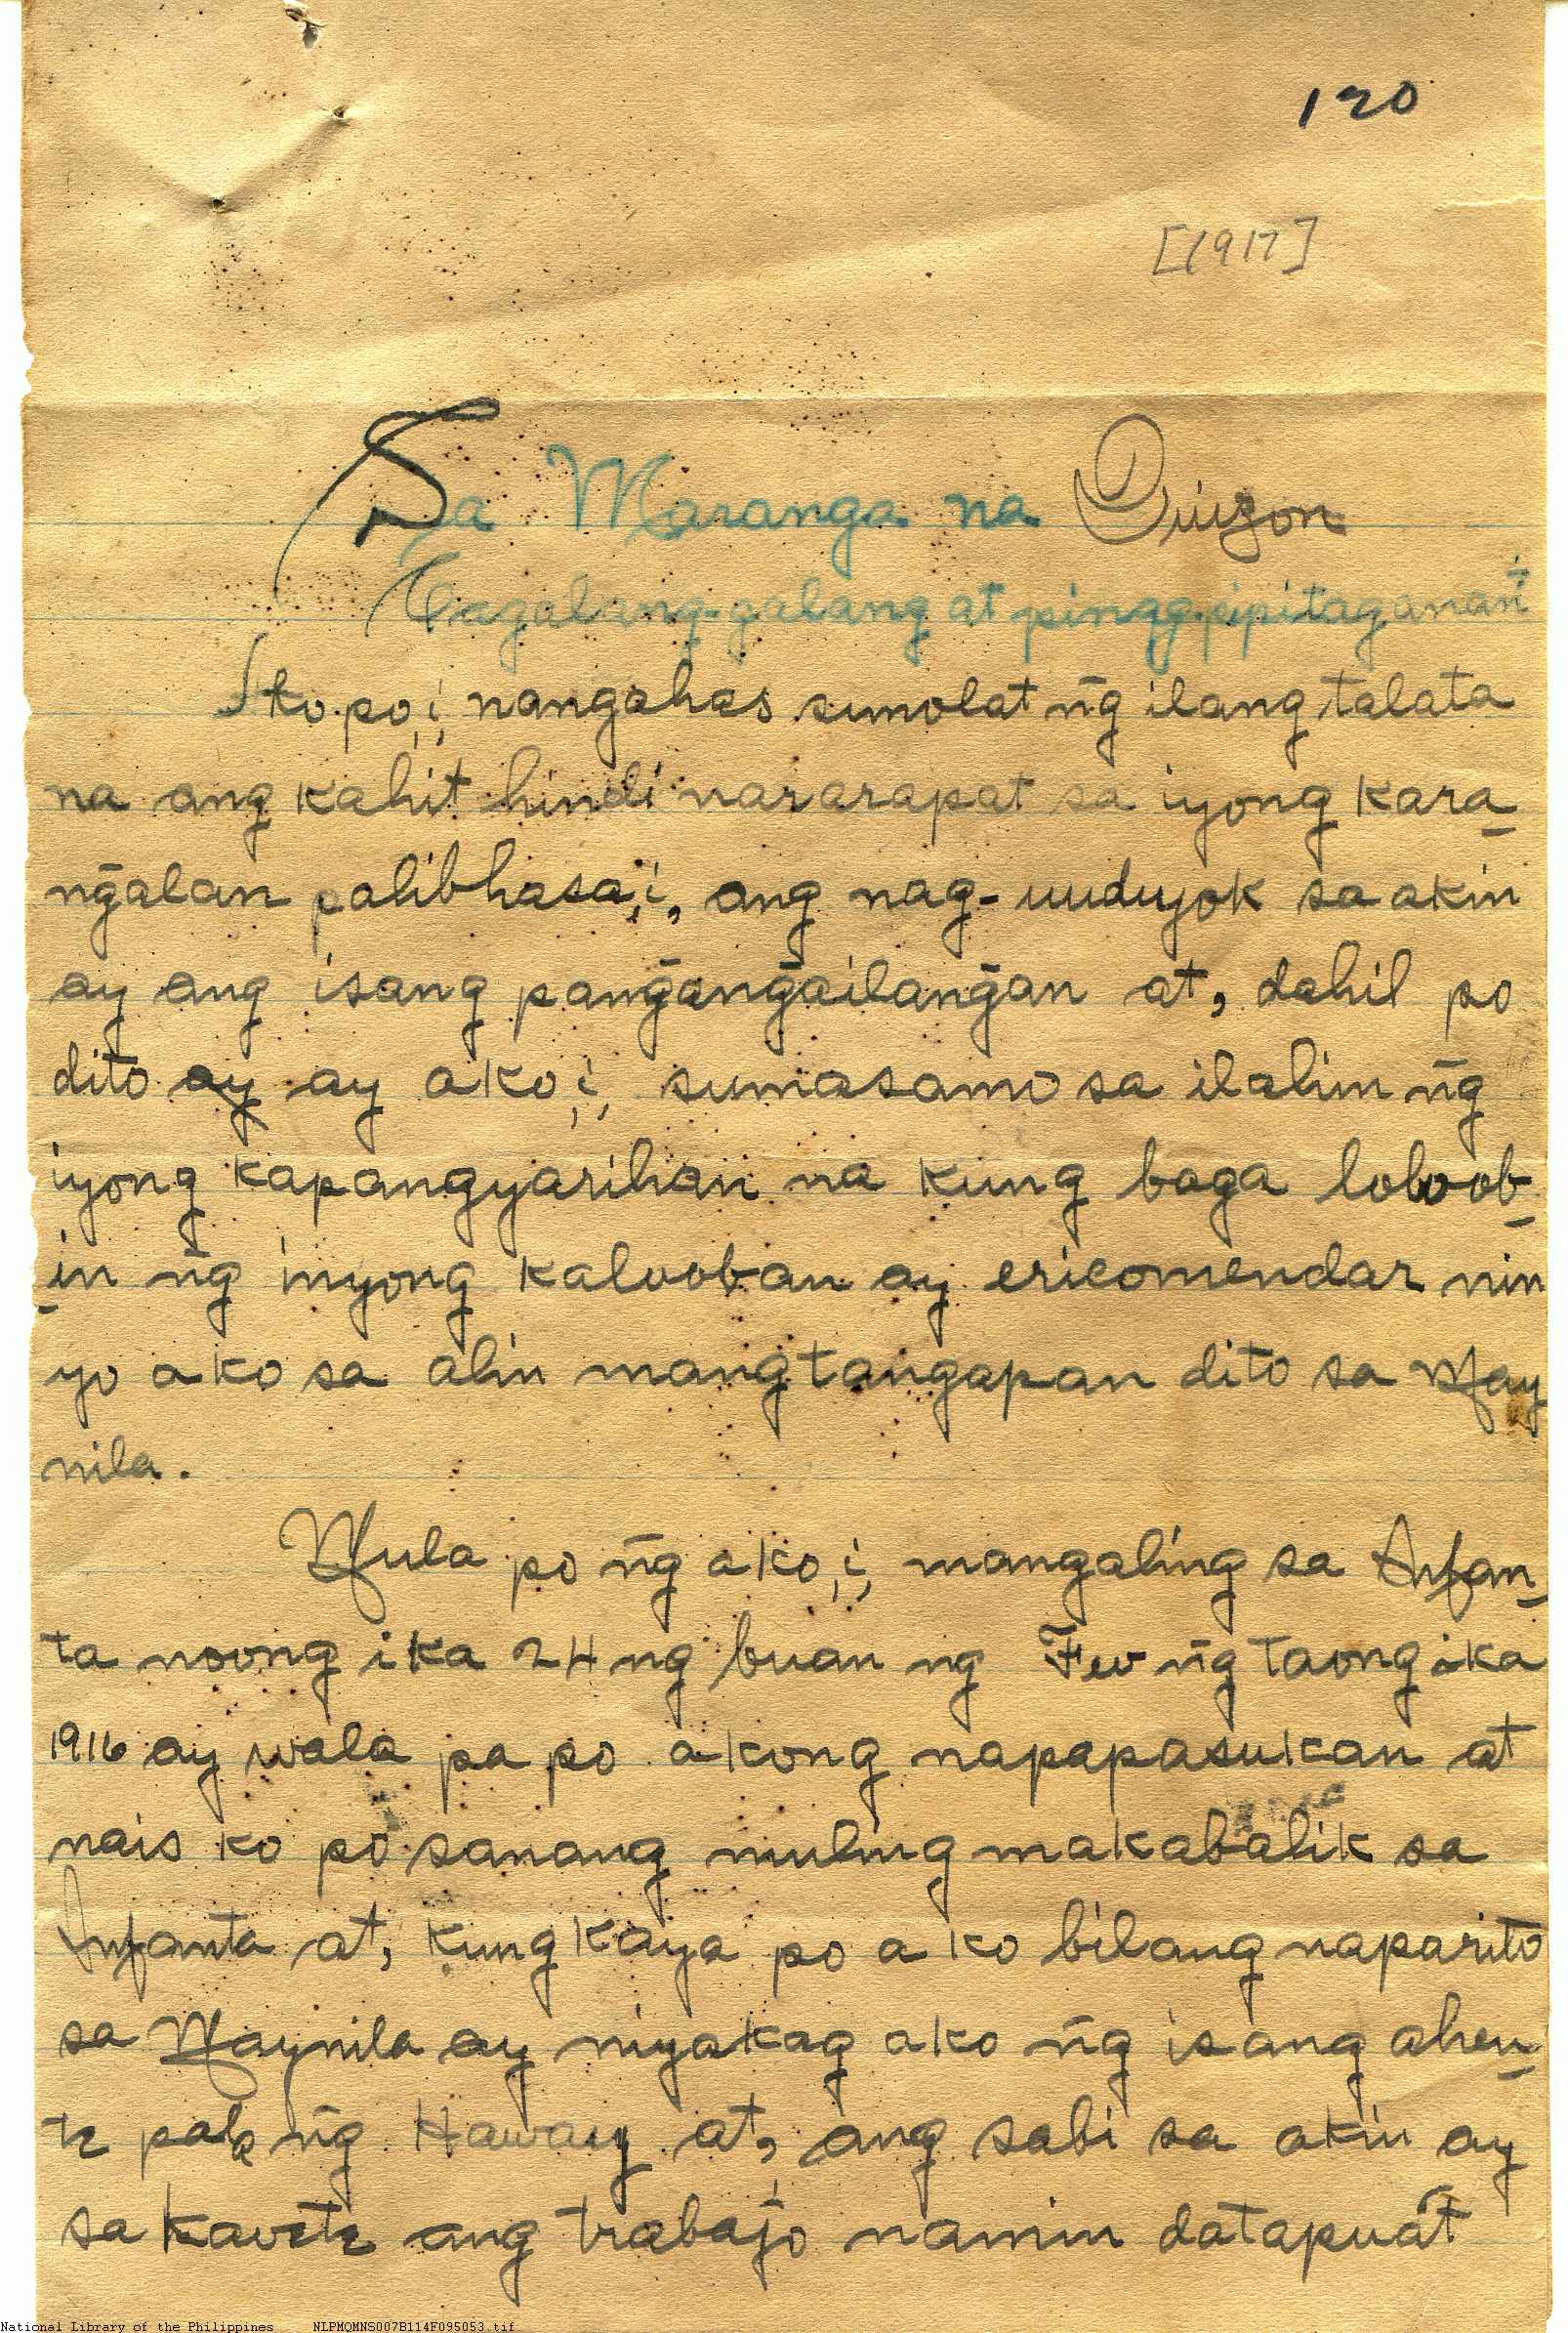 120
[1917]
Sa Maranga na Quizon
Cagalang-galang at pinagpipitaganan
Ako po,i, nangahas sumolat ng̃ ilang talata
na ang kahit hindi nararapat sa iyong kara-
ng̃alan palibhasa,i, ang nag-uudyok sa akin
ay ang isang pang̃ang̃ailang̃an at, dahil po
dito ay ay ako,i, sumasamo sa ilalim ng̃
iyong kapangyarihan na kung baga loloob-
in ng̃ inyong kalooban ay ericomendar nin
yo ako sa alin mang tangapan dito sa May
nila.
Mula po ng̃ ako,i, mangaling sa Infan-
ta noong ika 24 ng buan ng Fev ng̃ taong ika
1916 ay wala pa po akong napapasukan at
nais ko po sanang muling makabalik sa
Infanta at, kung kaya po ako bilang naparito
sa Maynila ay niyakag ako ng̃ isang ahen-
te pala ng̃ Haway at, ang sabi sa akin ay
sa Kavete ang trabajo namin datapuat
National Library of the Philippines NLPMQMNS007B114F095053.tif